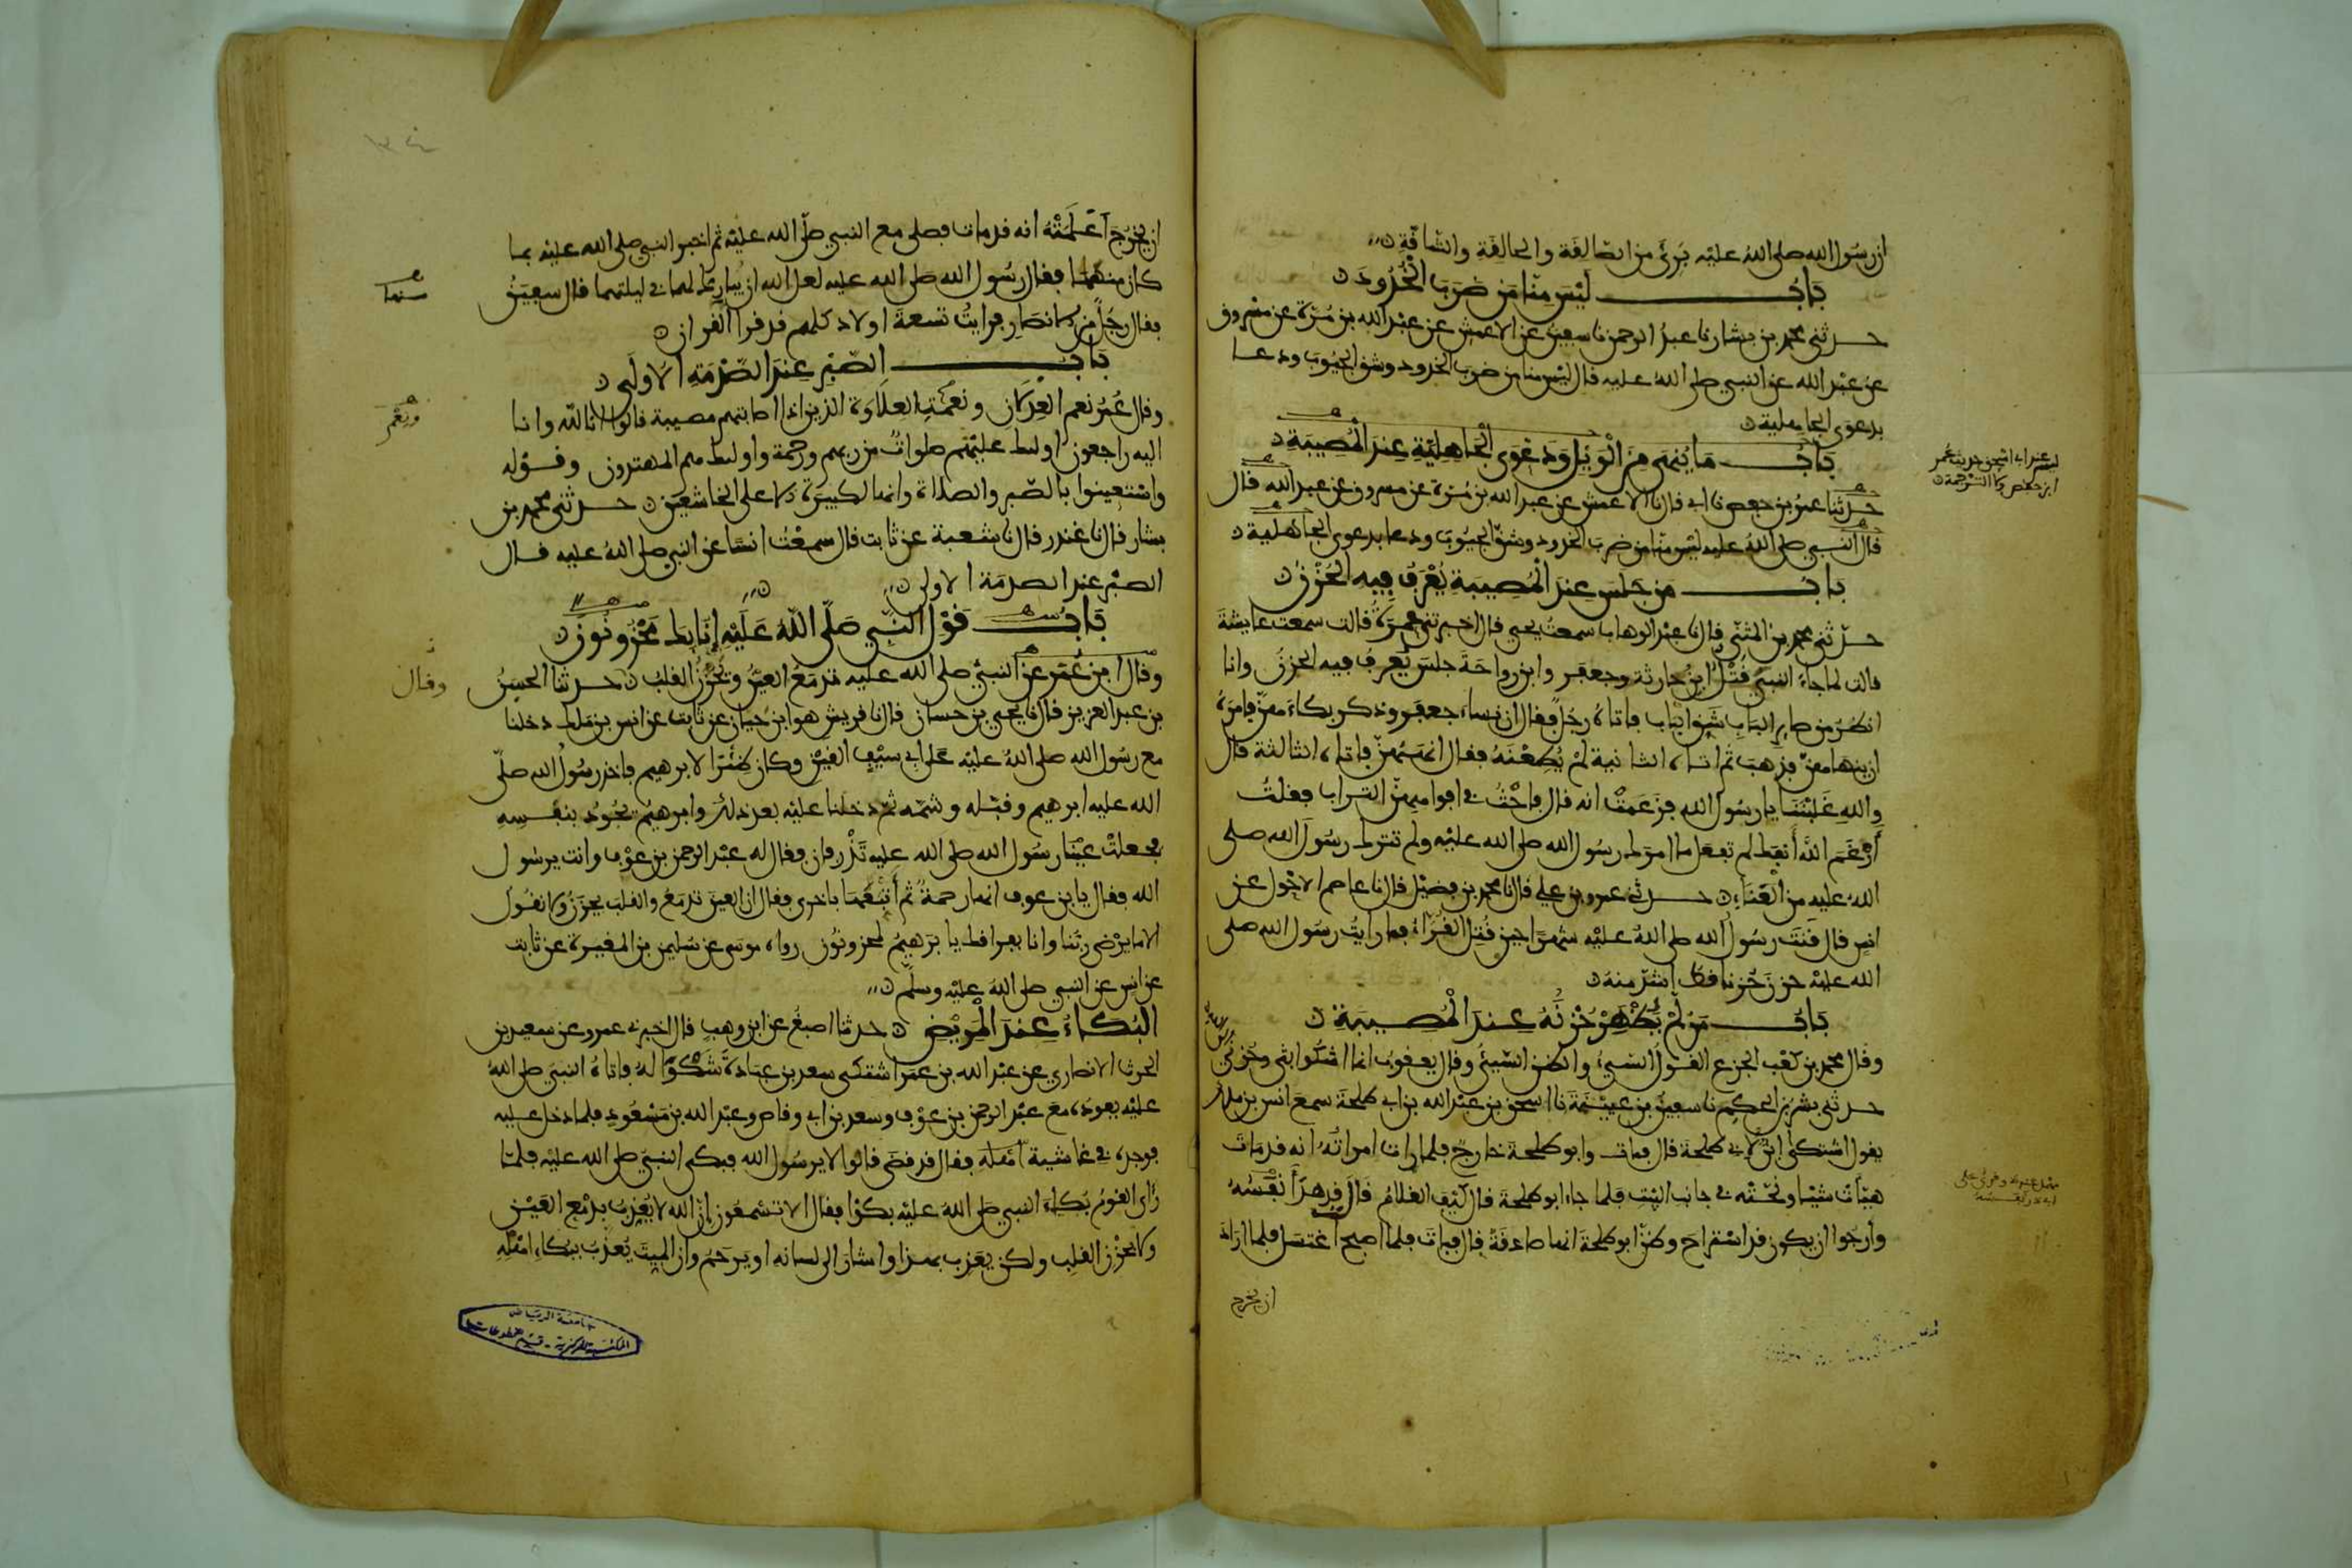 ان رسول الله صلى الله عليه بَرِئَ من الصالقة والحالقة والشاقة
باب ليس منا من ضرب الخدود
حدثني محمد بن بشار نا عبد الرحمن نا سفين عن الاعمش عن عبد الله بن مرة عن مسروق
عن عبد الله عن النبي صلى الله عليه قال ليس منا من ضرب الخدود وشق الجيوب ودعا
بدعوى الجاهلية
باب ما ينهى من الويل ودعوى الجاهلية عند المصيبة
حدثنا عمر بن حفص نا ابي قال نا الاعمش عن عبد الله بن مرة عن مسروق عن عبد الله قال
قال النبي صلى الله عليه ليس منا من ضرب الخدود وشق الجيوب ودعا بدعوى الجاهلية
باب من جلس عند المصيبة يعرف فيه الحزن
حدثني محمد بن المثنى قال نا عبد الوهاب سمعت يحيى قال اخبرتني عمرة قالت سمعت عايشة
قالت لما جاء النبي قتل ابن حارثة وجعفر وابن رواحة جلس يعرف فيه الحزن وانا
انظر من صاير الباب شق الباب فاتاه رجل فقال ان نساء جعفر وذكر بكاءهن فامره
ان ينهاهن فذهب ثم اتاه الثانية لم يطعنه فقال انههن فاتاه الثالثة قال
والله غلبننا يا رسول الله فزعمت انه قال فاحث في افواههن التراب فقلت
ارغم الله انفك لم تفعل ما امرك رسول الله صلى الله عليه ولم تترك رسول الله صلى
الله عليه من العناء حدثني عمرو بن علي قال نا محمد بن فضيل قال نا عاصم الاحول عن
انس قال قنت رسول الله صلى الله عليه شهرا حين قتل القراء فما رايت رسول الله صلى
الله عليه حزن حزنا قط اشد منه
باب من لم يظهر حزنه عند المصيبة
وقال محمد بن كعب الجزع القول السيئ والظن السيئ وقال يعقوب انما اشكوا بثي وحزني
حدثني بشر بن الحكم نا سفين بن عيينة نا اسحق بن عبد الله بن ابي طلحة سمع انس بن ملك
يقول اشتكى ابن لابي طلحة قال فمات وابو طلحة خارج فلما رات امراته انه قد مات
هيأت شيئا ونحته في جانب البيت فلما جاء ابو طلحة قال كيف الغلام قال قد هدأ نفسه
وارجوا ان يكون قد استراح وظن ابو طلحة انها صادقة قال فبات فلما اصبح اغتسل فلما اراد
ان يخرج
ان يخرج اعلمته انه قد مات فصلى مع النبي صلى الله عليه ثم اخبر النبي صلى الله عليه بما
كان منهما فقال رسول الله صلى الله عليه لعل الله ان يبارك لهما في ليلتهما قال سفين
فقال رجل من الانصار فرايت تسعة اولاد كلهم قد قرا القران
باب الصبر عند الصدمة الاولى
وقال عمر نعم العدلان ونعمت العلاوة الذين اذا اصابتهم مصيبة قالوا انا لله وانا
اليه راجعون اولئك عليهم صلوات من ربهم ورحمة واولئك هم المهتدون وقوله
واستعينوا بالصبر والصلاة وانها لكبيرة الا على الخاشعين حدثني محمد بن
بشار قال نا غندر قال نا شعبة عن ثابت قال سمعت انسا عن النبي صلى الله عليه قال
الصبر عند الصدمة الاولى
باب قول النبي صلى الله عليه انا بك لمحزونون
وقال ابن عمر عن النبي صلى الله عليه تدمع العين ويحزن القلب حدثنا الحسن
بن عبد العزيز قال نا يحيى بن حسان قال نا قريش هو ابن حيان عن ثابت عن انس بن ملك دخلنا
مع رسول الله صلى الله عليه على ابي سيف القين وكان ظئرا لابرهيم فاخذ رسول الله صلى
الله عليه ابرهيم وقبله وشمه ثم دخلنا عليه بعد ذلك وابرهيم يجود بنفسه
فجعلت عينا رسول الله صلى الله عليه تذرفان فقال له عبد الرحمن بن عوف وانت يرسول
الله فقال يا بن عوف انها رحمة ثم اتبعها باخرى فقال ان العين تدمع والقلب يحزن ولا نقول
الا ما يرضى ربنا وانا بفراقك يا برهيم لمحزونون رواه موسى عن سليمن بن المغيرة عن ثابت
عن انس عن النبي صلى الله عليه وسلم
البكاء عند المريض حدثنا اصبغ عن ابن وهب قال اخبرني عمرو عن سعيد بن
الحرث الانصاري عن عبد الله بن عمر اشتكى سعد بن عبادة شكوا له فاتاه النبي صلى الله
عليه يعوده مع عبد الرحمن بن عوف وسعد بن ابي وقاص وعبد الله بن مسعود فلما دخل عليه
فوجده في غاشية اهله فقال قد قضى قالوا لا يرسول الله فبكى النبي صلى الله عليه فلما
راى القوم بكاء النبي صلى الله عليه بكوا فقال الا تسمعون ان الله لا يعذب بدمع العين
ولا بحزن القلب ولكن يعذب بهذا واشار الى لسانه او يرحم وان الميت يعذب ببكاء اهله
منهما
ونعم
وقال
جامعة الرياض
المكتبة المركزية - قسم المخطوطات